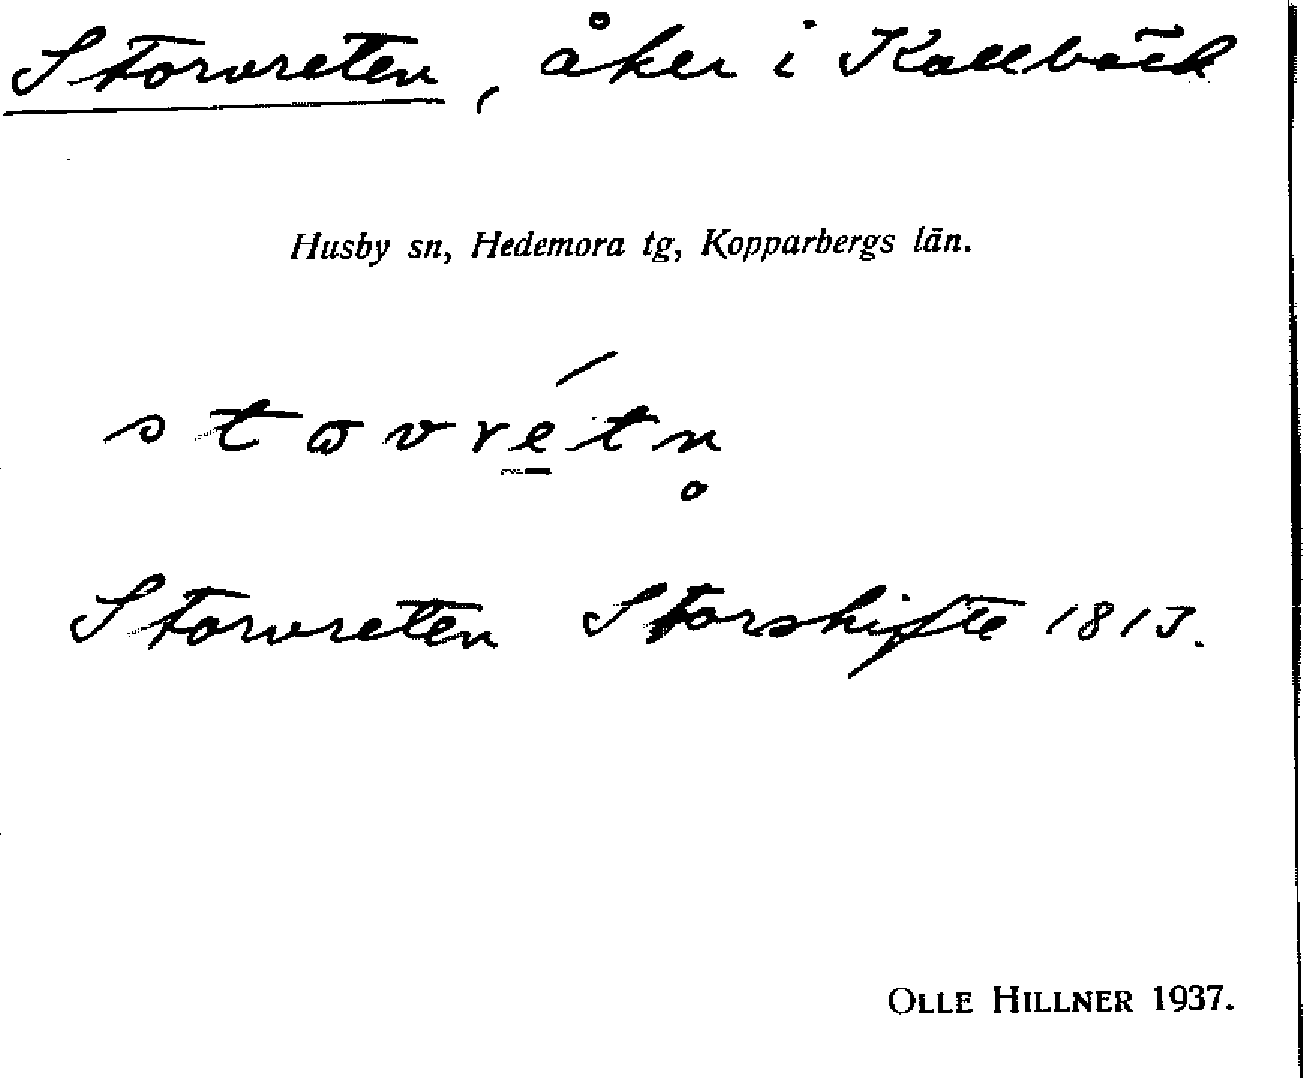 Storvreten, åker i Kallbäck
Husby sn, Hedemora tg, Kopparbergs län.
Storvreten Storskifte
OLLE HILLNER 1937.